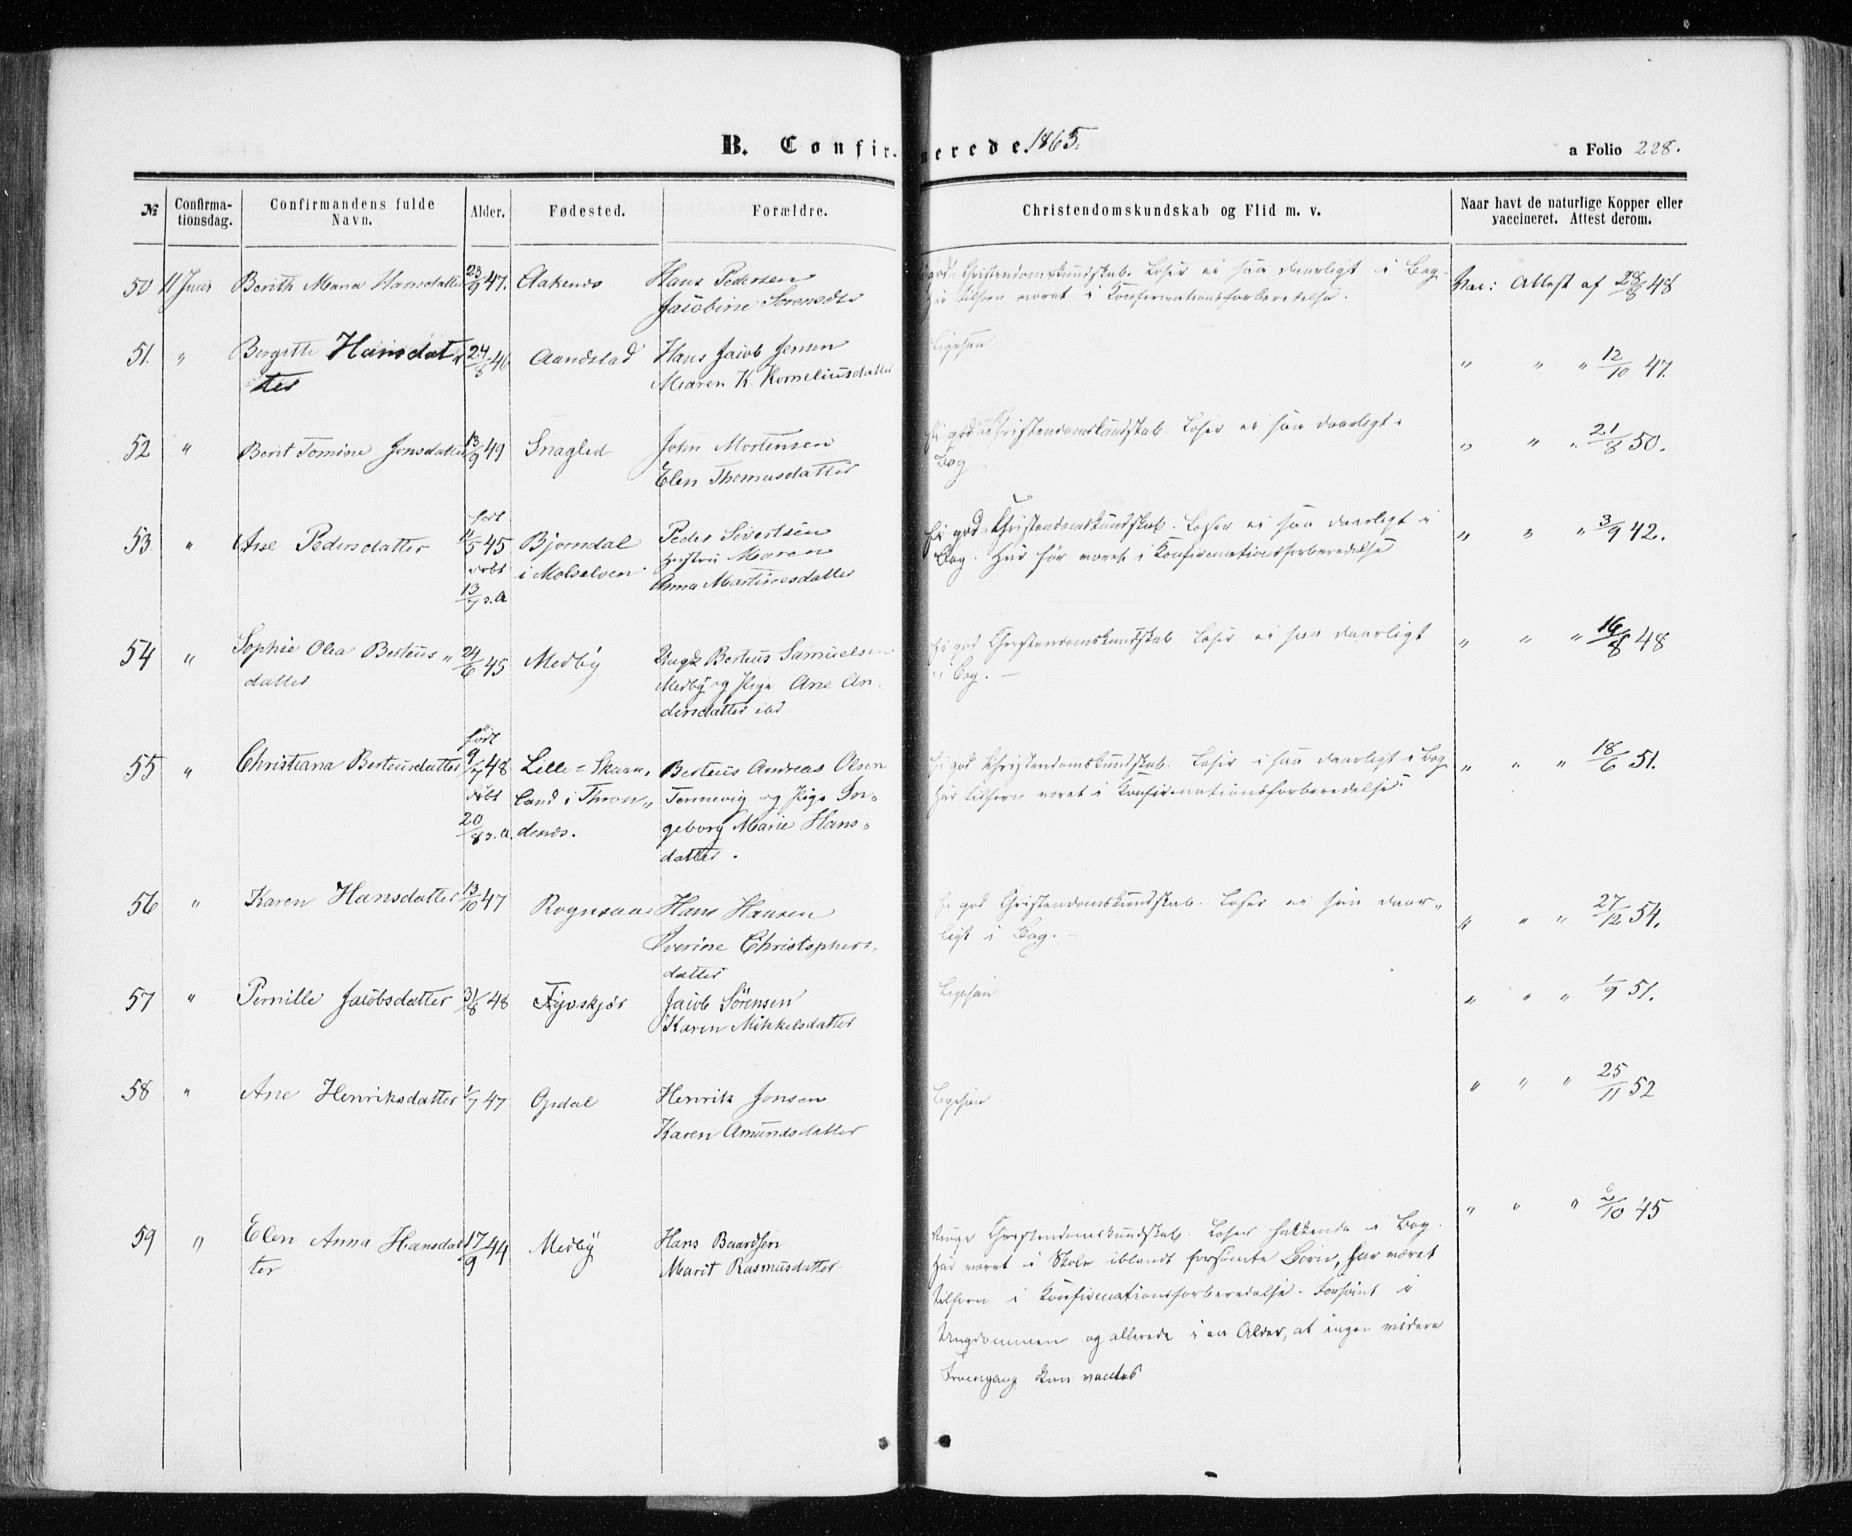 B. Confirmerede 1865.
a Folio 228.
№ Confirmationsdag. Confirmandens fulde Navn. Alder. Fødested. Forældre. Christendomskundskab og Flid m. v. Naar havt de naturlige Kopper eller vaccineret. Attest derom.
50 11 Juni Berith Maria Hansdatter 23/9 47. Aakenæs Hans Pedersen
Jacobine Sørensdtr
god Christendomskundskab. Læser ei saa daarligt i Bog.
Har tilforn været i Konfirmationsforberedelse.
Vac: Attest af 28/8 48
51. " Bergitte Hansdat 24/8 46 Aandstad Hans Jacob Jensen
ter Maren K. Korneliusdatter
Ligesaa
" " " 12/10 47.
52 " Berit Tomine Jonsdatter 13/9 49 Snagled John Mortensen
Elen Thomasdatter
Ei god Christendomskundskab. Læser ei saa daarligt i
Bog
" " " 21/8 50.
53 " Ane Pedersdatter født 11/5 45 døbt 13/7 s.a Bjørndal
i Molselven
Peder Sivertsen
Hustru Maren
Anna Martinesdatter
Ei god Christendomskundskab. Læser ei saa daarligt i
Bog. Har før været i Konfirmationsforberedelse
" " " 3/9 42.
54 " Sophie Olea Berteus" 24/6 45 Medby Ungk Berteus Samuelsen
datter Medby og Pige Ane An
dersdatter ibd
Ei god Christendomskundskab. Læser ei saa daarligt
i Bog. —
" " " 16/8 48
55 " Christiana Berteusdatter født 9/7 48 døbt 20/8 s.a. Lille-Skaan,
land i Thron"
denæs.
Berteus Andreas Olsen
Tennevig og Pige In"
geborg Marie Hans"
datter.
Ei god Christendomskundskab. Læser i saa daarligt i Bog
Har tilforn været i Konfirmationsforberedelse
" " " 18/6 51.
56 " Karen Hansdatter 13/10 47 Rognsaa Hans Hansen
Iverine Christophers.
datter
Ei god Christendomskundskab. Læser ei saa daar"
ligt i Bog. —
" " " 27/12 54.
57 " Pernille Jacobsdatter 31/8 48 Jacob Sørensen
Karen Mikkelsdatter
Ligesaa
" " " 1/9 51.
58 " Ane Henriksdatter 1/7 47 Opdal Henrik Jonsen
Karen Amundsdatter
Ligesaa
" " " 25/11 52
59 " Elen Anna Hansdat 17/9 44 Medby Hans Baardsen
ter Marit Rasmusdatter
Christendomskundskab. Læser hakkende i Bog.
Har været i Skole iblandt forsømte Børn, har været
tilforn i Konfirmationsforberedelse. Forsømt i
Ungdommen og allerede i en Alder, at ingen videre
Fremgang kan ventes
" " " 2/10 45